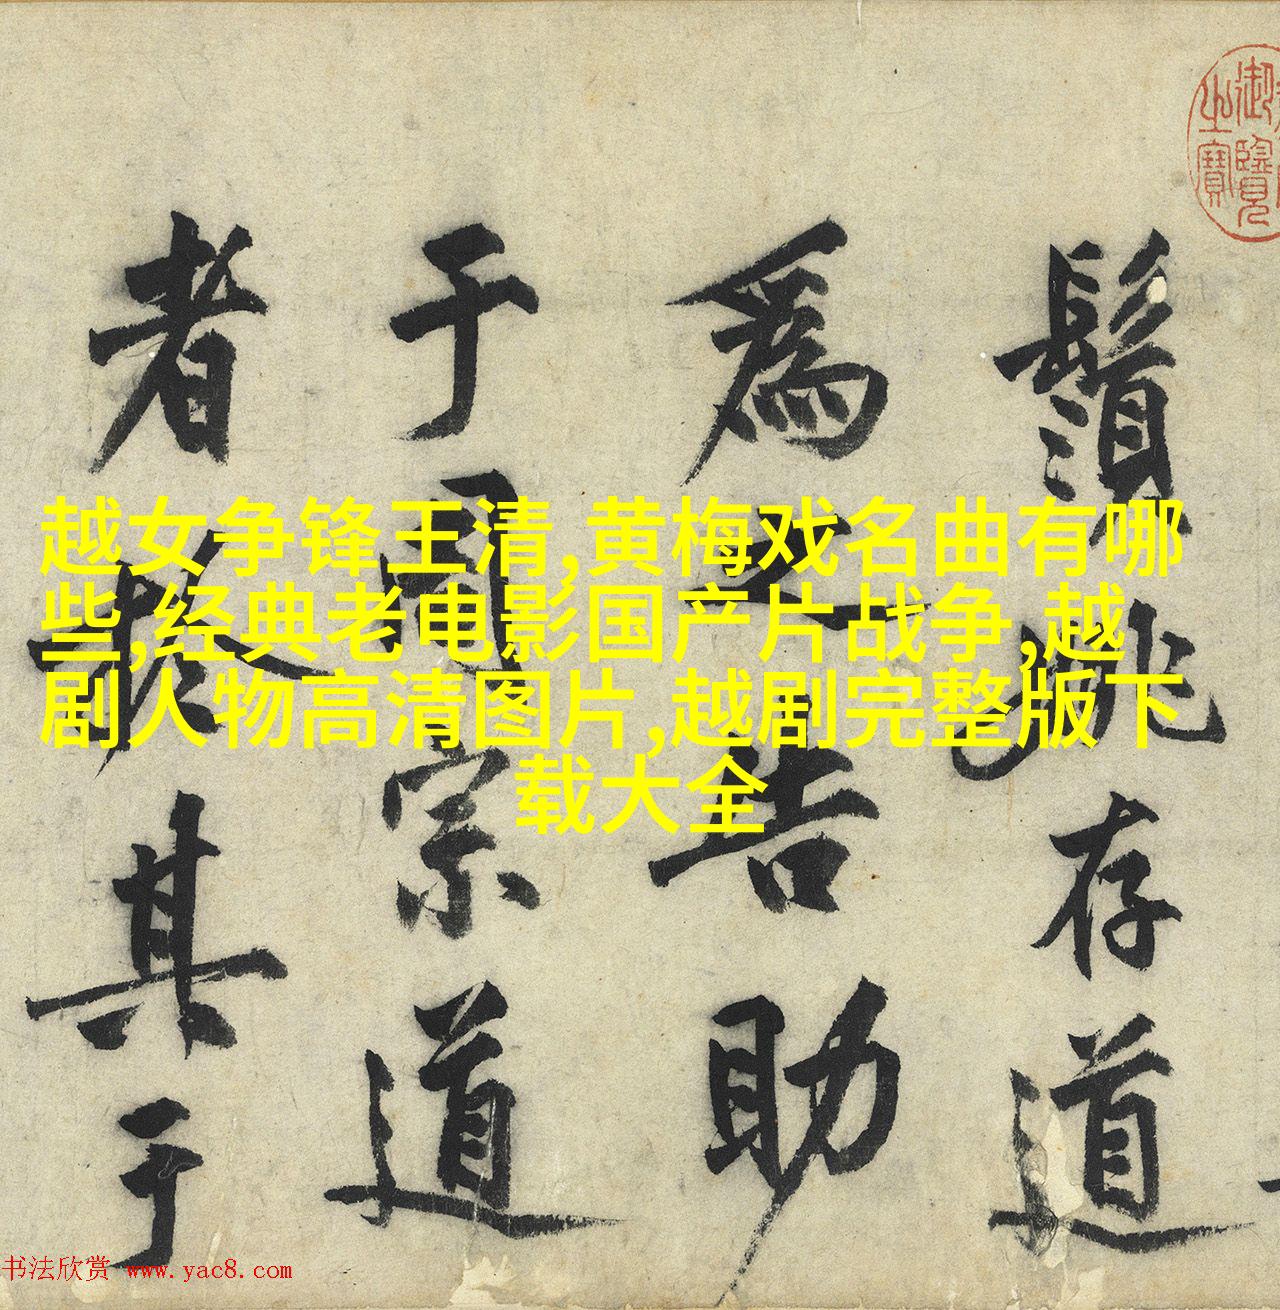 御覽
之寶
鬚姚存道
為之告助
于周宗道
者於其于
越女争锋王清,黄梅戏名曲有哪
些,经典老电影国产片战争,越
剧人物高清图片,越剧完整版下
载大全
书法欣赏 www.yac8.com